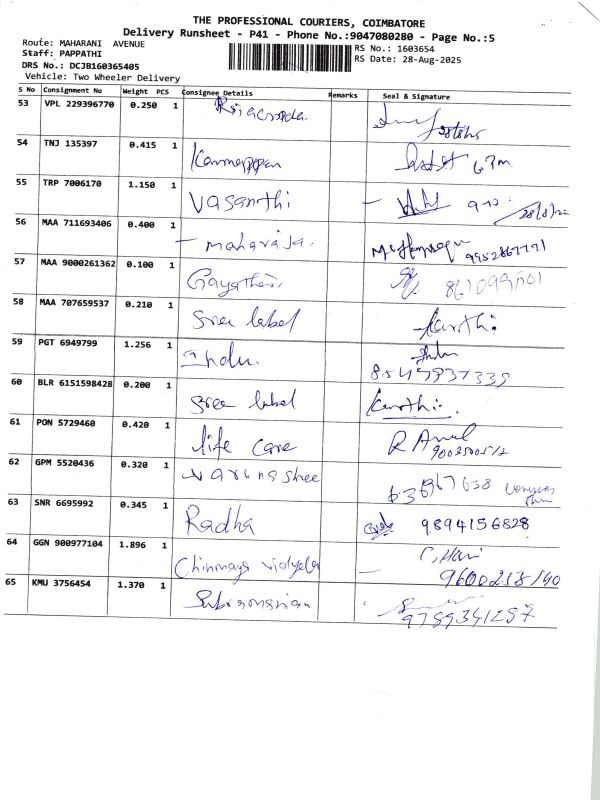 THE PROFESSIONAL COURIERS, COIMBATORE
Delivery Runsheet - P41 - Phone No.:9047080280 - Page No.:5
Route: MAHARANI AVENUE
Staff: PAPPATHI
RS No.: 1603654
DRS No.: DCJB160365405
RS Date: 28-Aug-2025
Vehicle: Two Wheeler Delivery
S No Consignment No Weight PCS Consignee Details Remarks Seal & Signature
53 VPL 229396770 0.250 1
54 TNJ 135397 0.415 1
55 TRP 7006170 1.150 1 Vasanthi
56 MAA 711693406 0.400 1 maharaja.
9952867771
57 MAA 9000261362 0.100 1 Gayathri
58 MAA 707659537 0.210 1 Sree label Karthi
59 PGT 6949799 1.256 1 Indu.
60 BLR 6151598428 0.200 1 Sree label Karthi
61 PON 5729460 0.420 1 life care
62 GPM 5520436 0.320 1 Varunashree
63 SNR 6695992 0.345 1 Radha 9894156828
64 GGN 900977104 1.896 1 Chinmaya C. Hari
9600218140
65 KMU 3756454 1.370 1 Subramanian
9789341297